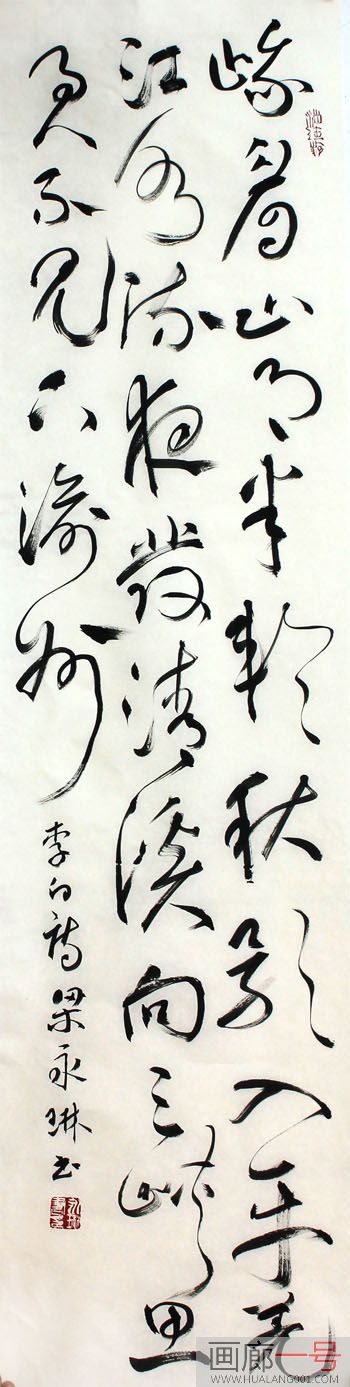 峨眉山月半輪秋影入平羌
江水流夜發清溪向三峽思
君不見下渝州
李白詩梁永琳书
画廊一号
WWW.HUALANG001.COM